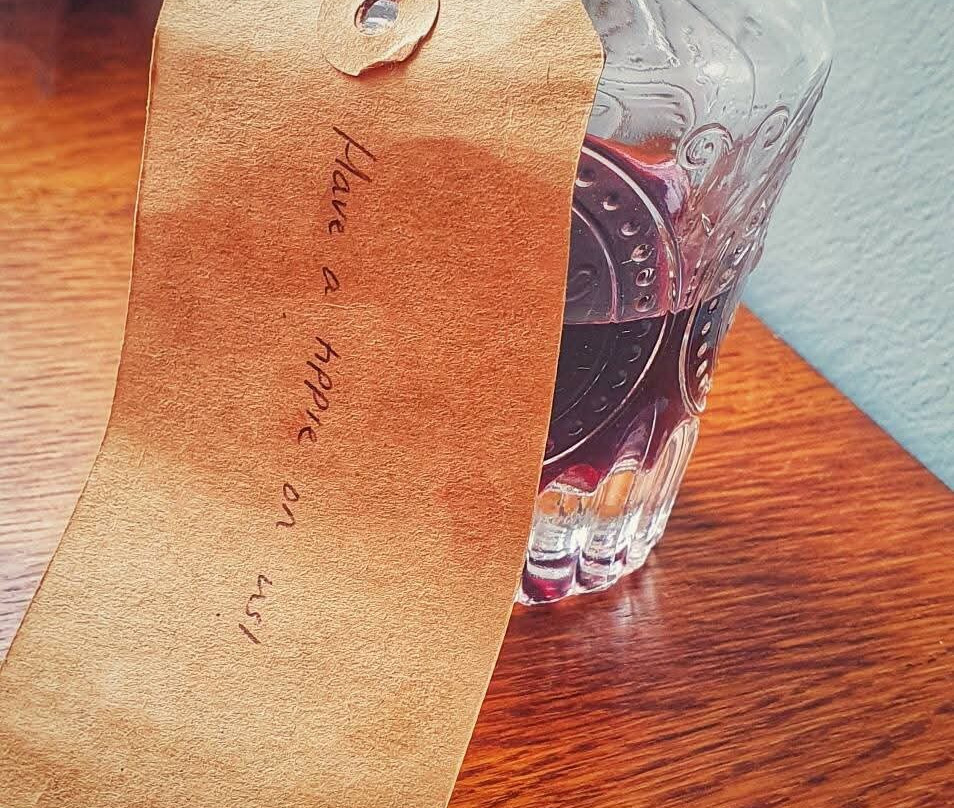 Have a tipple on us!